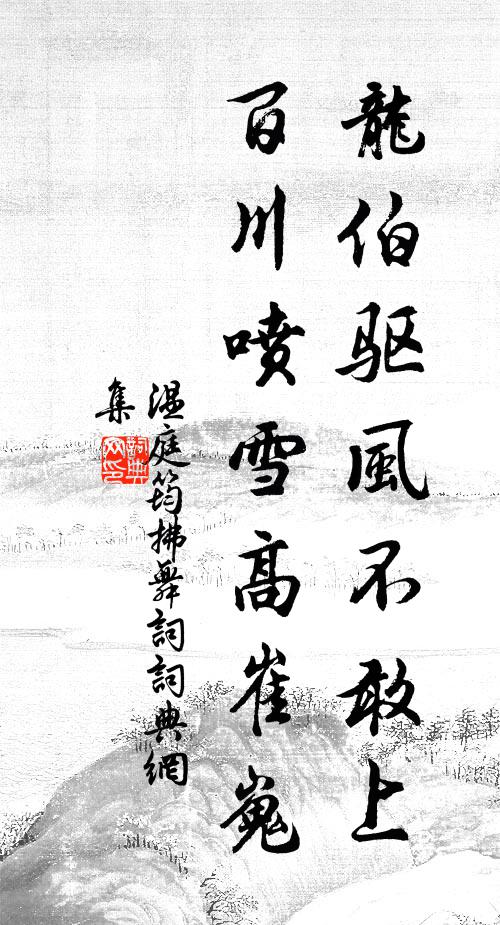 龍伯驱風不敢上
百川喷雪高崔嵬
温庭筠拂舞詞詞典網
集